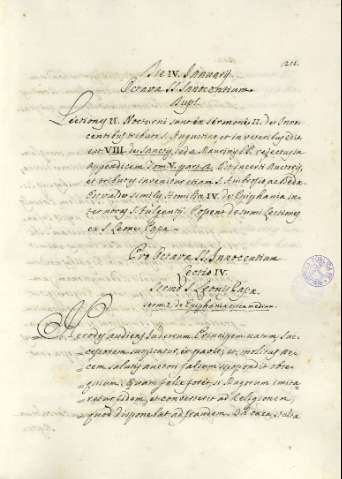 211.
Die IV. Januarij
Octava SS. Innocentium
Dupl.
Lectiones II. Nocturni sunt ex sermone 11. de Inno
centibus tributo S. Augustino et in veteribus edit.
est VIII de Sanctis, sed a Maurinis PP. rejectus in
Appendicem Tom. V. part. 2.
et tribuunt etiam S. Ambrosio ac Beda.
simili Homilia IV. de Epiphania in
ter novas S. Fulgentij. Possent desumi Lectiones
ex S. Leone Papa.
Pro Octava SS. Innocentium
Lectio IV.
Sermo S. Leonis Papæ.
serm. 2. de Epiphania circa medium.
Herodes audiens Judæorum Principem natum, suc
cessorem suspicatur, in parte, et, molitus ne
cem salutis auctori falsum spopondit obse
quium. Quam felix foret, si Magorum imita
retur fidem, et converteret ad Religionem,
quod disponebat ad fraudem. O cæca stulta